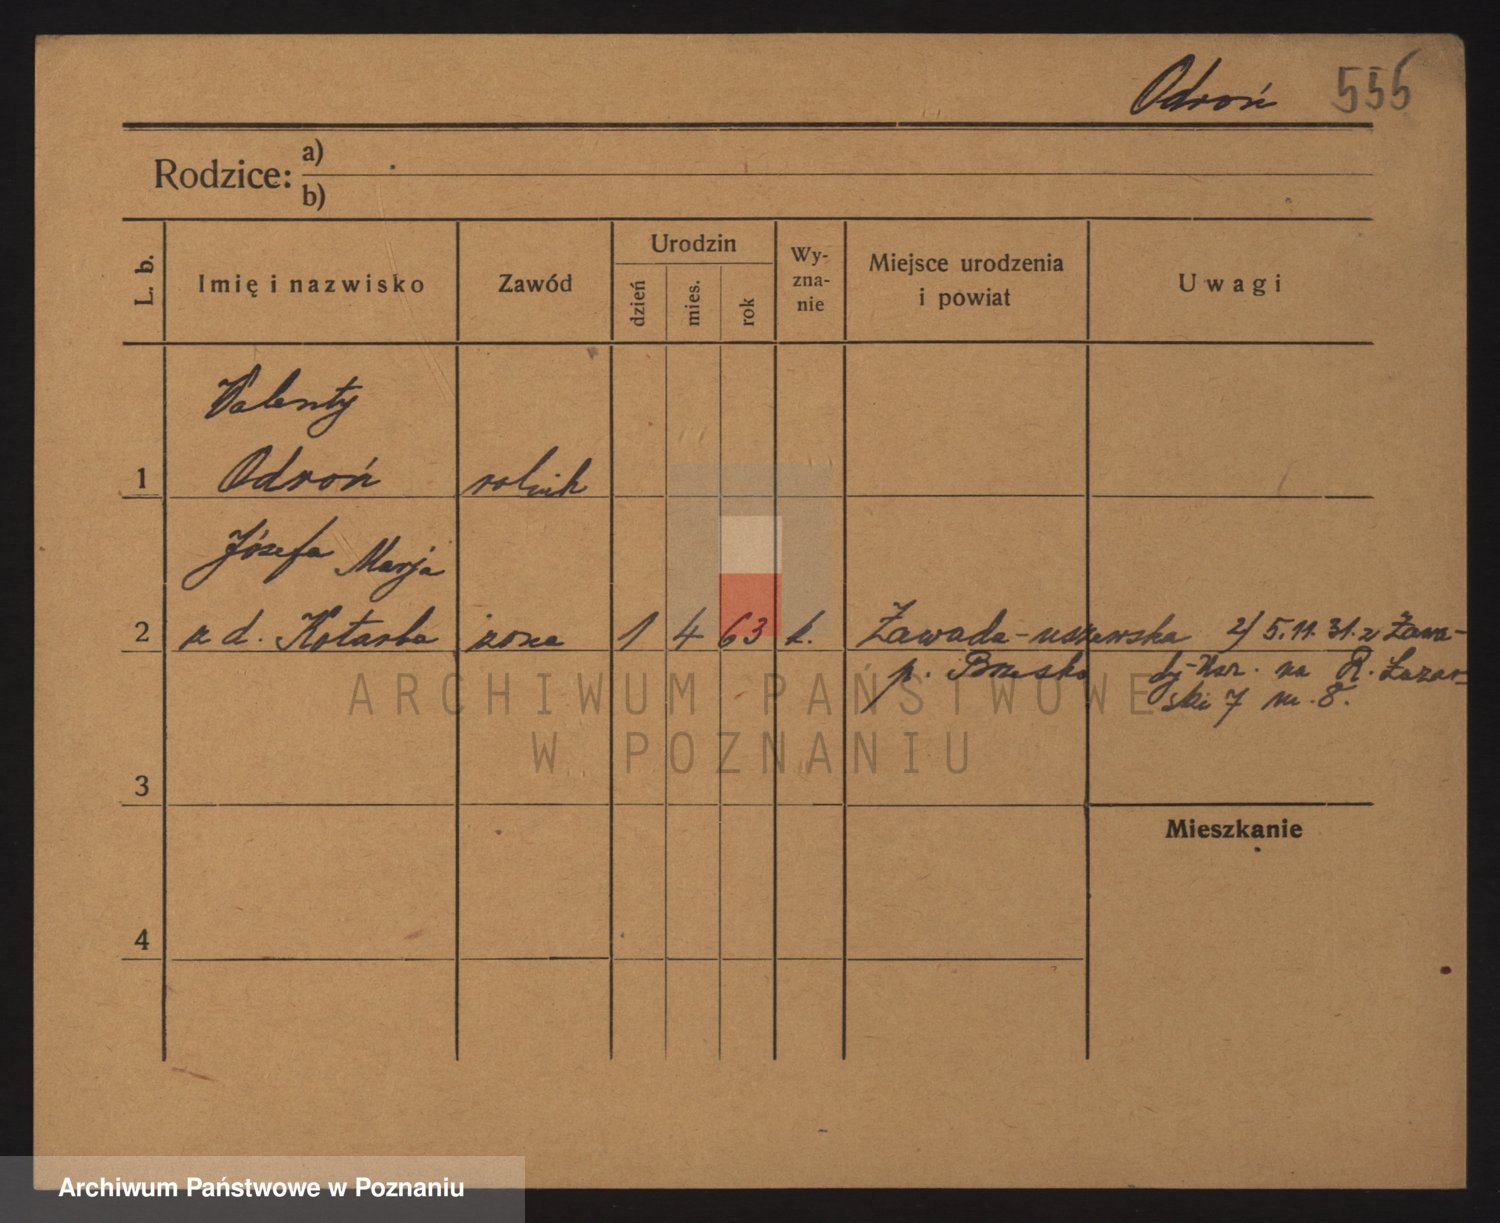 Odroń 555
Rodzice: a)
b)
L. b.
Imię i nazwisko
Zawód
Urodzin
dzień
mies.
rok
Wy-
zna-
nie
Miejsce urodzenia
i powiat
Uwagi
Walenty
1 Odroń rolnik
Józefa Marja
2 z d. Kotarba żona 1 4 63 k. Zawada-uszewska 2) 5.11.31. z Zawa-
p. Brzesko dy-Usz. na R. Łazar-
ski 7 m. 8.
ARCHIWUM PAŃSTWOWE
W POZNANIU
3
Mieszkanie
4
Archiwum Państwowe w Poznaniu